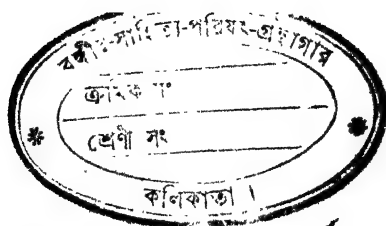 বঙ্গীয়-সাহিত্য-পরিষৎ-গ্রন্থাগার
ক্রমিক নং
শ্রেণী সং
কলিকাতা।